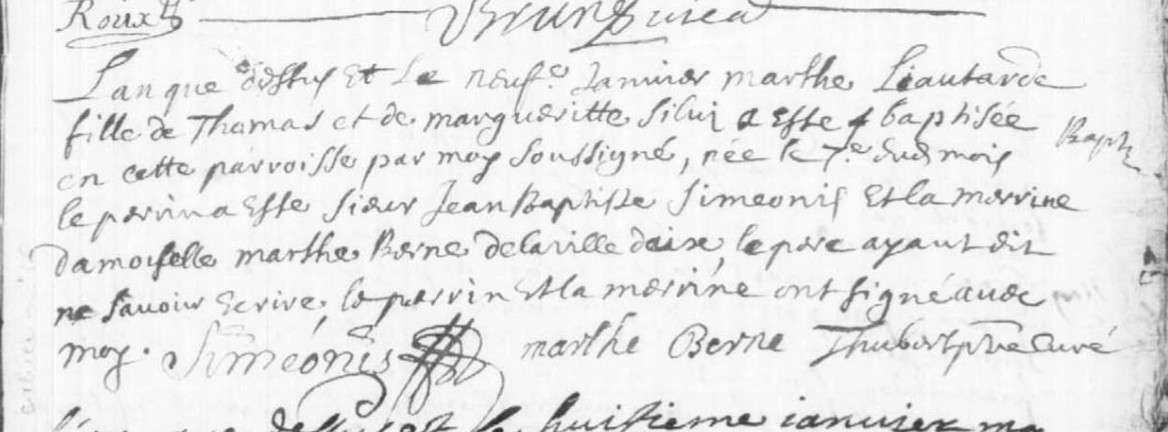 Roux
L'an que dessus et le neufe Janvier marthe Liautarde
fille de Thomas et de margueritte Silui a Este baptisée
Bapt
en cette parroisse par moy soussigné, née le 7.e dud mois
le perrin a Este sieur Jean Baptiste Simeonis Et la merrine
damoiselle marthe Berne de la ville daix, le pere ayant dit
ne savoir Ecrire, le perrin Et la merrine ont signé avec
moy. Simeonis marthe Berne Thubert ptre Curé
dessus et le huitieme ianvier